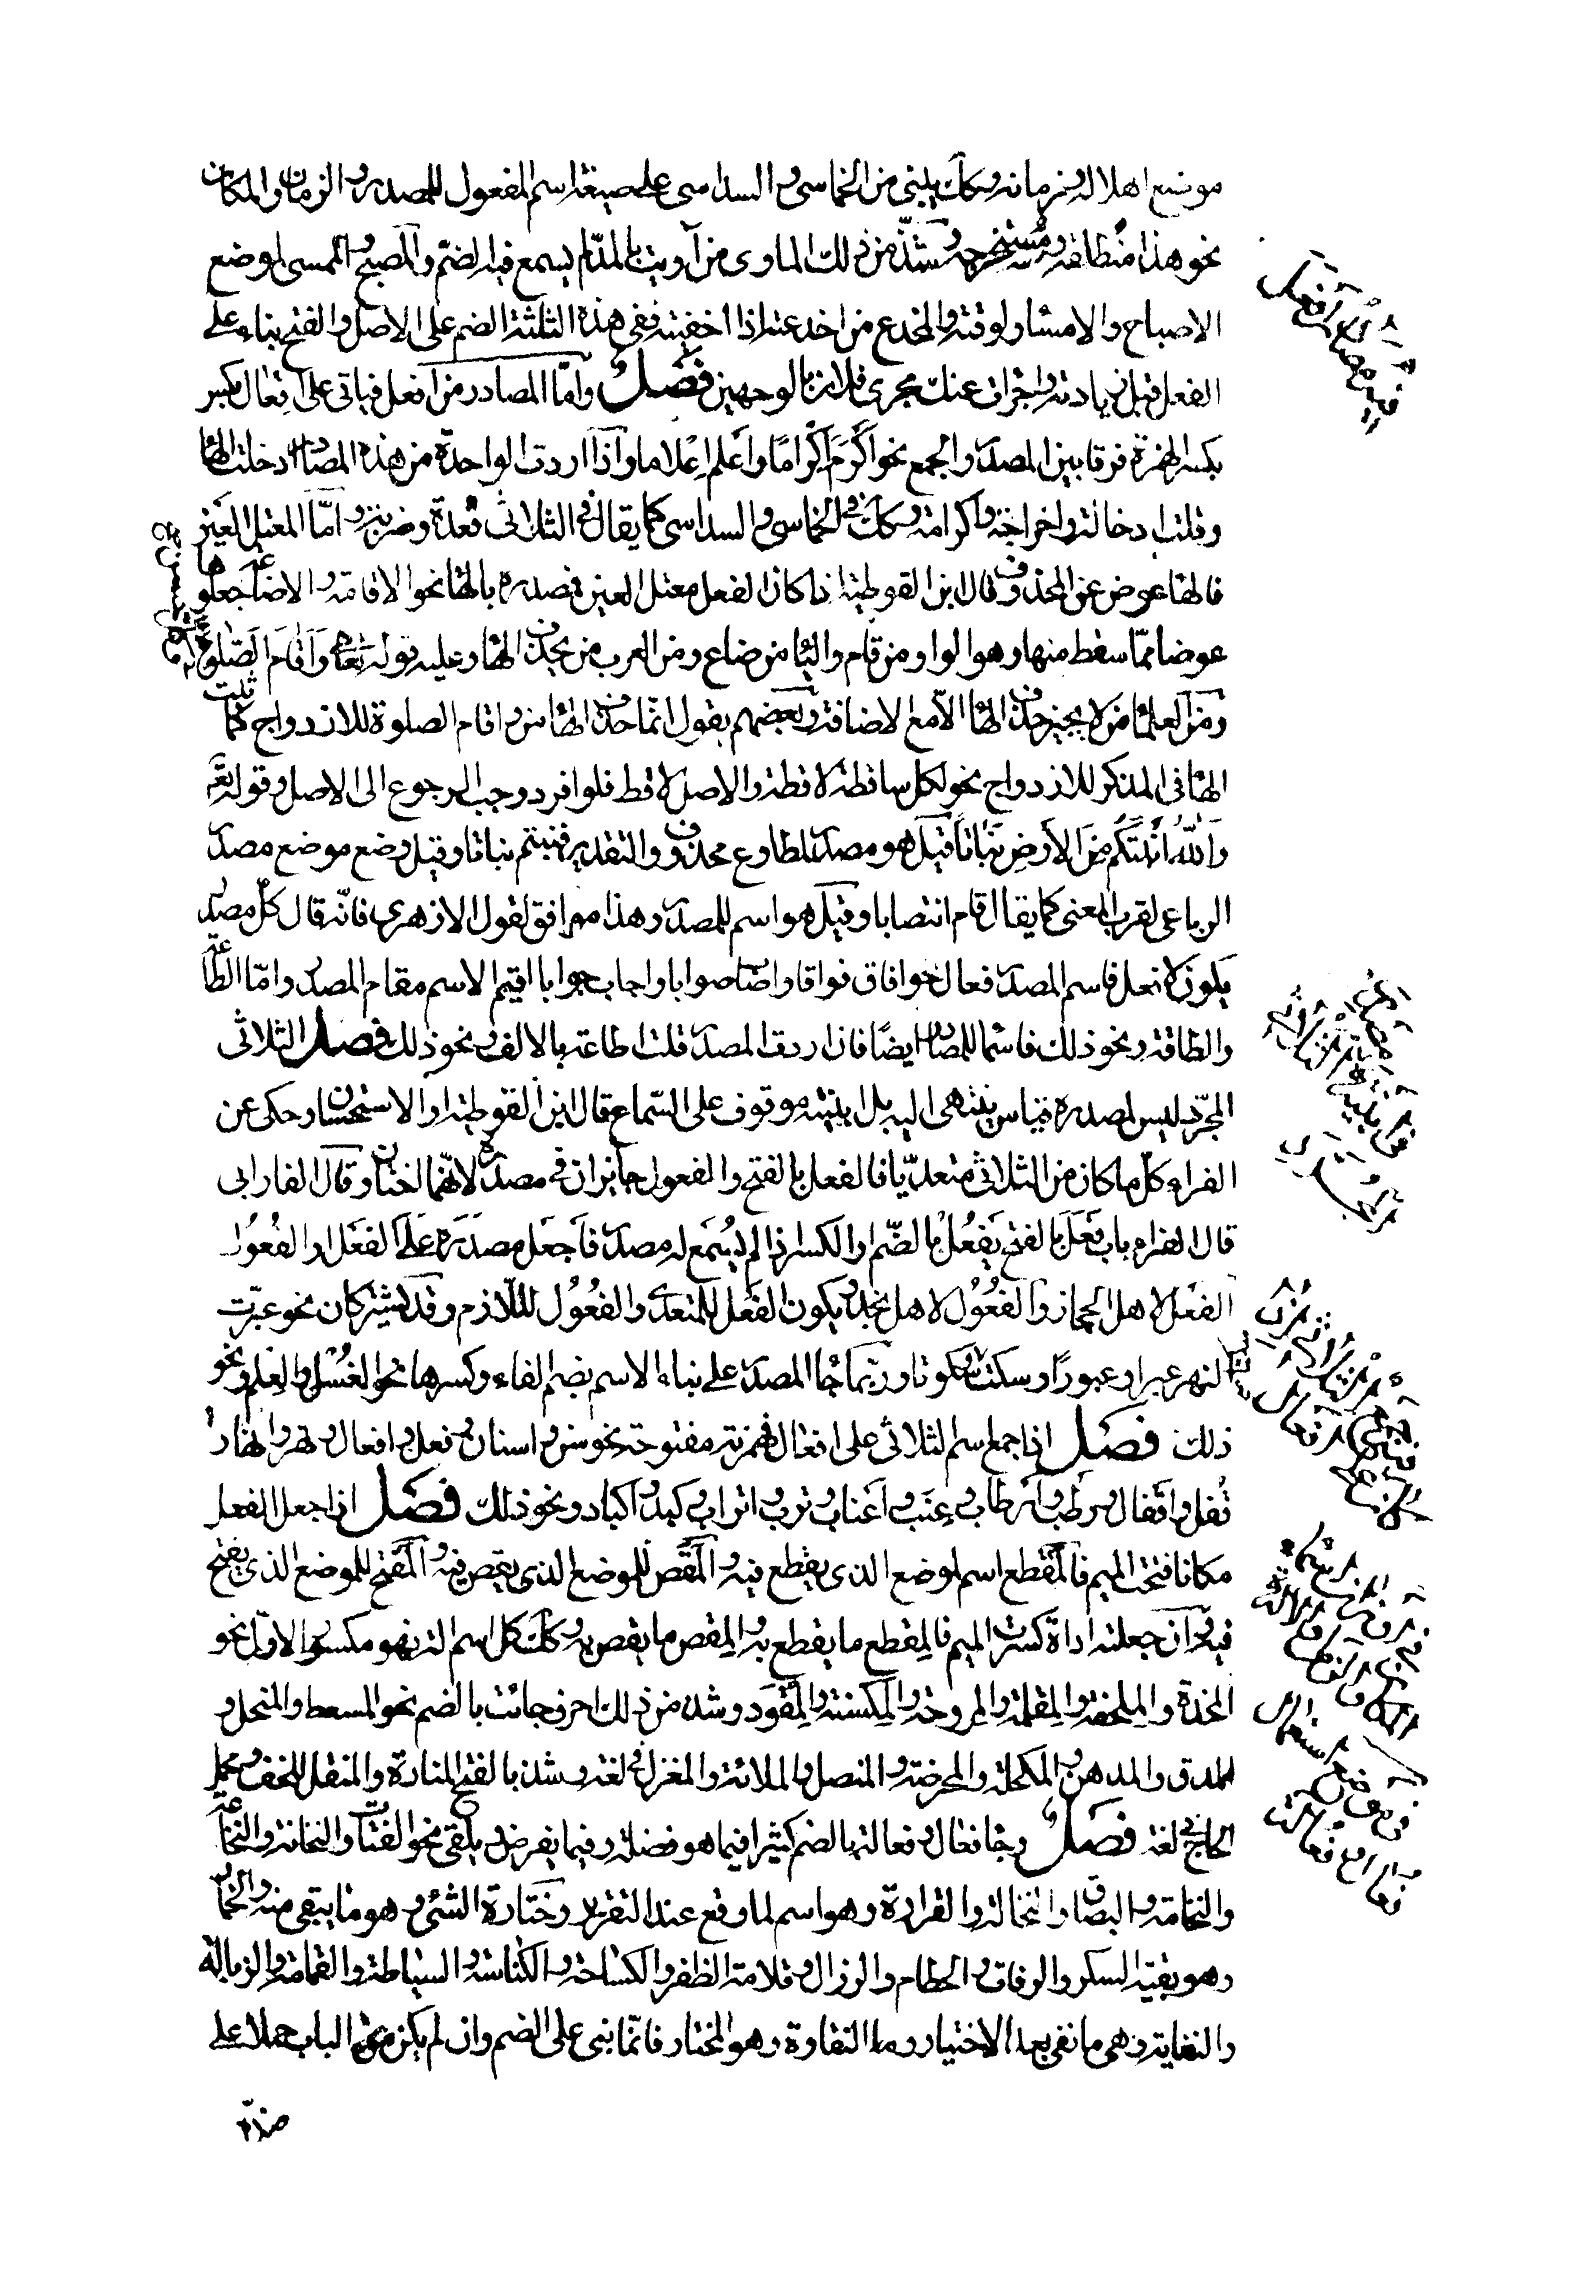 موضع اهلاله وزمانه وكذلك يبنى من الخماسى والسداسى على صيغة اسم المفعول للمصدر والزمان والمكان
نحو هذا منطلقه ومستخرجه وشذّ من ذلك الماوى من آويت بالمدّ لم يسمع فيه الضمّ والمصبح والممسى لموضع
الاصباح والامساء ولوقته والمخدع من اخدعته اذا اخفيته ففى هذه الثلثة الضم على الاصل والفتح بناء على
الفعل قبل زيادته واجزأت عنك مجزى فلان بالوجهين فصل وامّا المصادر من افعل فياتى على افعال
بكسر الهمزة فرقا بين المصدر والجمع نحو اكرم اكرامًا واعلم اعلاما واذا اردت الواحدة من هذه المصادر ادخلت الهاء
وقلت ادخالة واخراجة واكرامة وكذلك فى الخماسى والسداسى كما يقال فى الثلاثى قعدة وضربة وامّا المعتل العين
فالهاء عوض عن المحذوف قال ابن القوطية اذا كان الفعل معتل العين فمصدره بالهاء نحو الاقامة والاضاعة جعلوها
عوضا ممّا سقط منها وهو الواو من قام والياء من ضاع ومن العرب من يحذف الهاء وعليه قوله تعالى واقام الصلوة
ومن العلماء من لا يجيز حذف الهاء الا مع الاضافة وبعضهم يقول انّما حذف الهاء من واقام الصلوة للازدواج كما ثبت
الهاء فى المذكر للازدواج نحو لكل ساقطة لاقطة والاصل لاقط فلو افرد وجب الرجوع الى الاصل وقوله تعالى
والله انبتكم من الارض نباتا قيل هو مصدر لمطاوع محذوف والتقدير فنبتم نباتا وقيل وضع موضع مصدر
الرباعى لقرب المعنى كما يقال قام انتصابا وقيل هو اسم للمصدر وهذا موافق لقول الازهرى فانّه قال كلّ مصدر
يكون لافعل فاسم المصدر فعال نحو افاق فواقا واصاب صوابا واجاب جوابا اقيم الاسم مقام المصدر وامّا الطاعة
والطاقة ونحو ذلك فاسماء للمصادر ايضًا فان اردت المصدر قلت اطاعة بالالف ونحو ذلك فصل الثلاثى
المجرّد ليس لمصدره قياس ينتهى اليه بل ابنيته موقوف على السّماع قال ابن القوطية او الاستحسان وحكى عن
الفراء كلّ ما كان من الثلاثى متعدّيا فالفعل بالفتح والفعول جائزان فى مصدره لانهما اختان وقال الفارابى
قال الفراء باب فعل بالفتح يفعُل بالضّم او الكسر اذا لم يسمع له مصدر فاجعل مصدره على الفَعْل او الفُعُول
الفعْل لاهل الحجاز والفُعُول لاهل نجد ويكون الفَعْل للمتعدى والفُعُول للّازم وقد يشتركان نحو عبرت
النهر عبرا وعبورًا وسكت سكتا وسكوتا وربّما جاء المصدر على بناء الاسم بضم الفاء وكسرها نحو الغُسْل والعِلم ونحو
ذلك فصل اذا جمع اسم الثلاثى على افعال فهمزته مفتوحة نحو سن واسنان وفعل وافعال ونهر وانهار
وقفل واقفال ورطب وارطاب وعنب واعناب وترب واتراب وكبد واكباد ونحو ذلك فصل اذا جعل الفعل
مكانا فتحت الميم فالمَقطع اسم لموضع الذى يقطع فيه والمَقَص للموضع الذى يقص فيه والمَفتح للموضع الذى يفتح
فيه وان جعلته اداة كسرت الميم فالمِقطع ما يقطع به والمِقص ما يقص به وكذلك كل اسم آلة فهو مكسور الاوّل نحو
المخدة والملحفة والمقلمة والمروحة والمكنسة والمقود وشذ من ذلك احرف جاءت بالضم نحو المسعط والمنخل و
المدق والمدهن والمكحلة والمحرضة والمنصل والملاءة والمغزل فى لغة وشذ بالفتح المنارة والمنقل للخف ومحمل
الحاج فى لغة فصل وجاء فعال وفعالة بالضم كثيرا فيما هو فضلة وفيما يفرض ويلقى نحو الفتات والنحاتة والنخاعة
والنخامة والبصاق والنخالة والقرارة وهو اسم لما وقع عند التقرير وختارة الشئ وهو ما يبقى منه والخمار
وهو بقيّة السكر والرفات والحطام والرذال وقلامة الظفر والكساحة والكناسة والسباطة والقمامة والزبالة
والنفاية وهى ما نفى بعد الاختيار واما النقاوة وهو المختار فانّما بنى على الضم وان لم يكن من هذا الباب حملا على
ضدّه